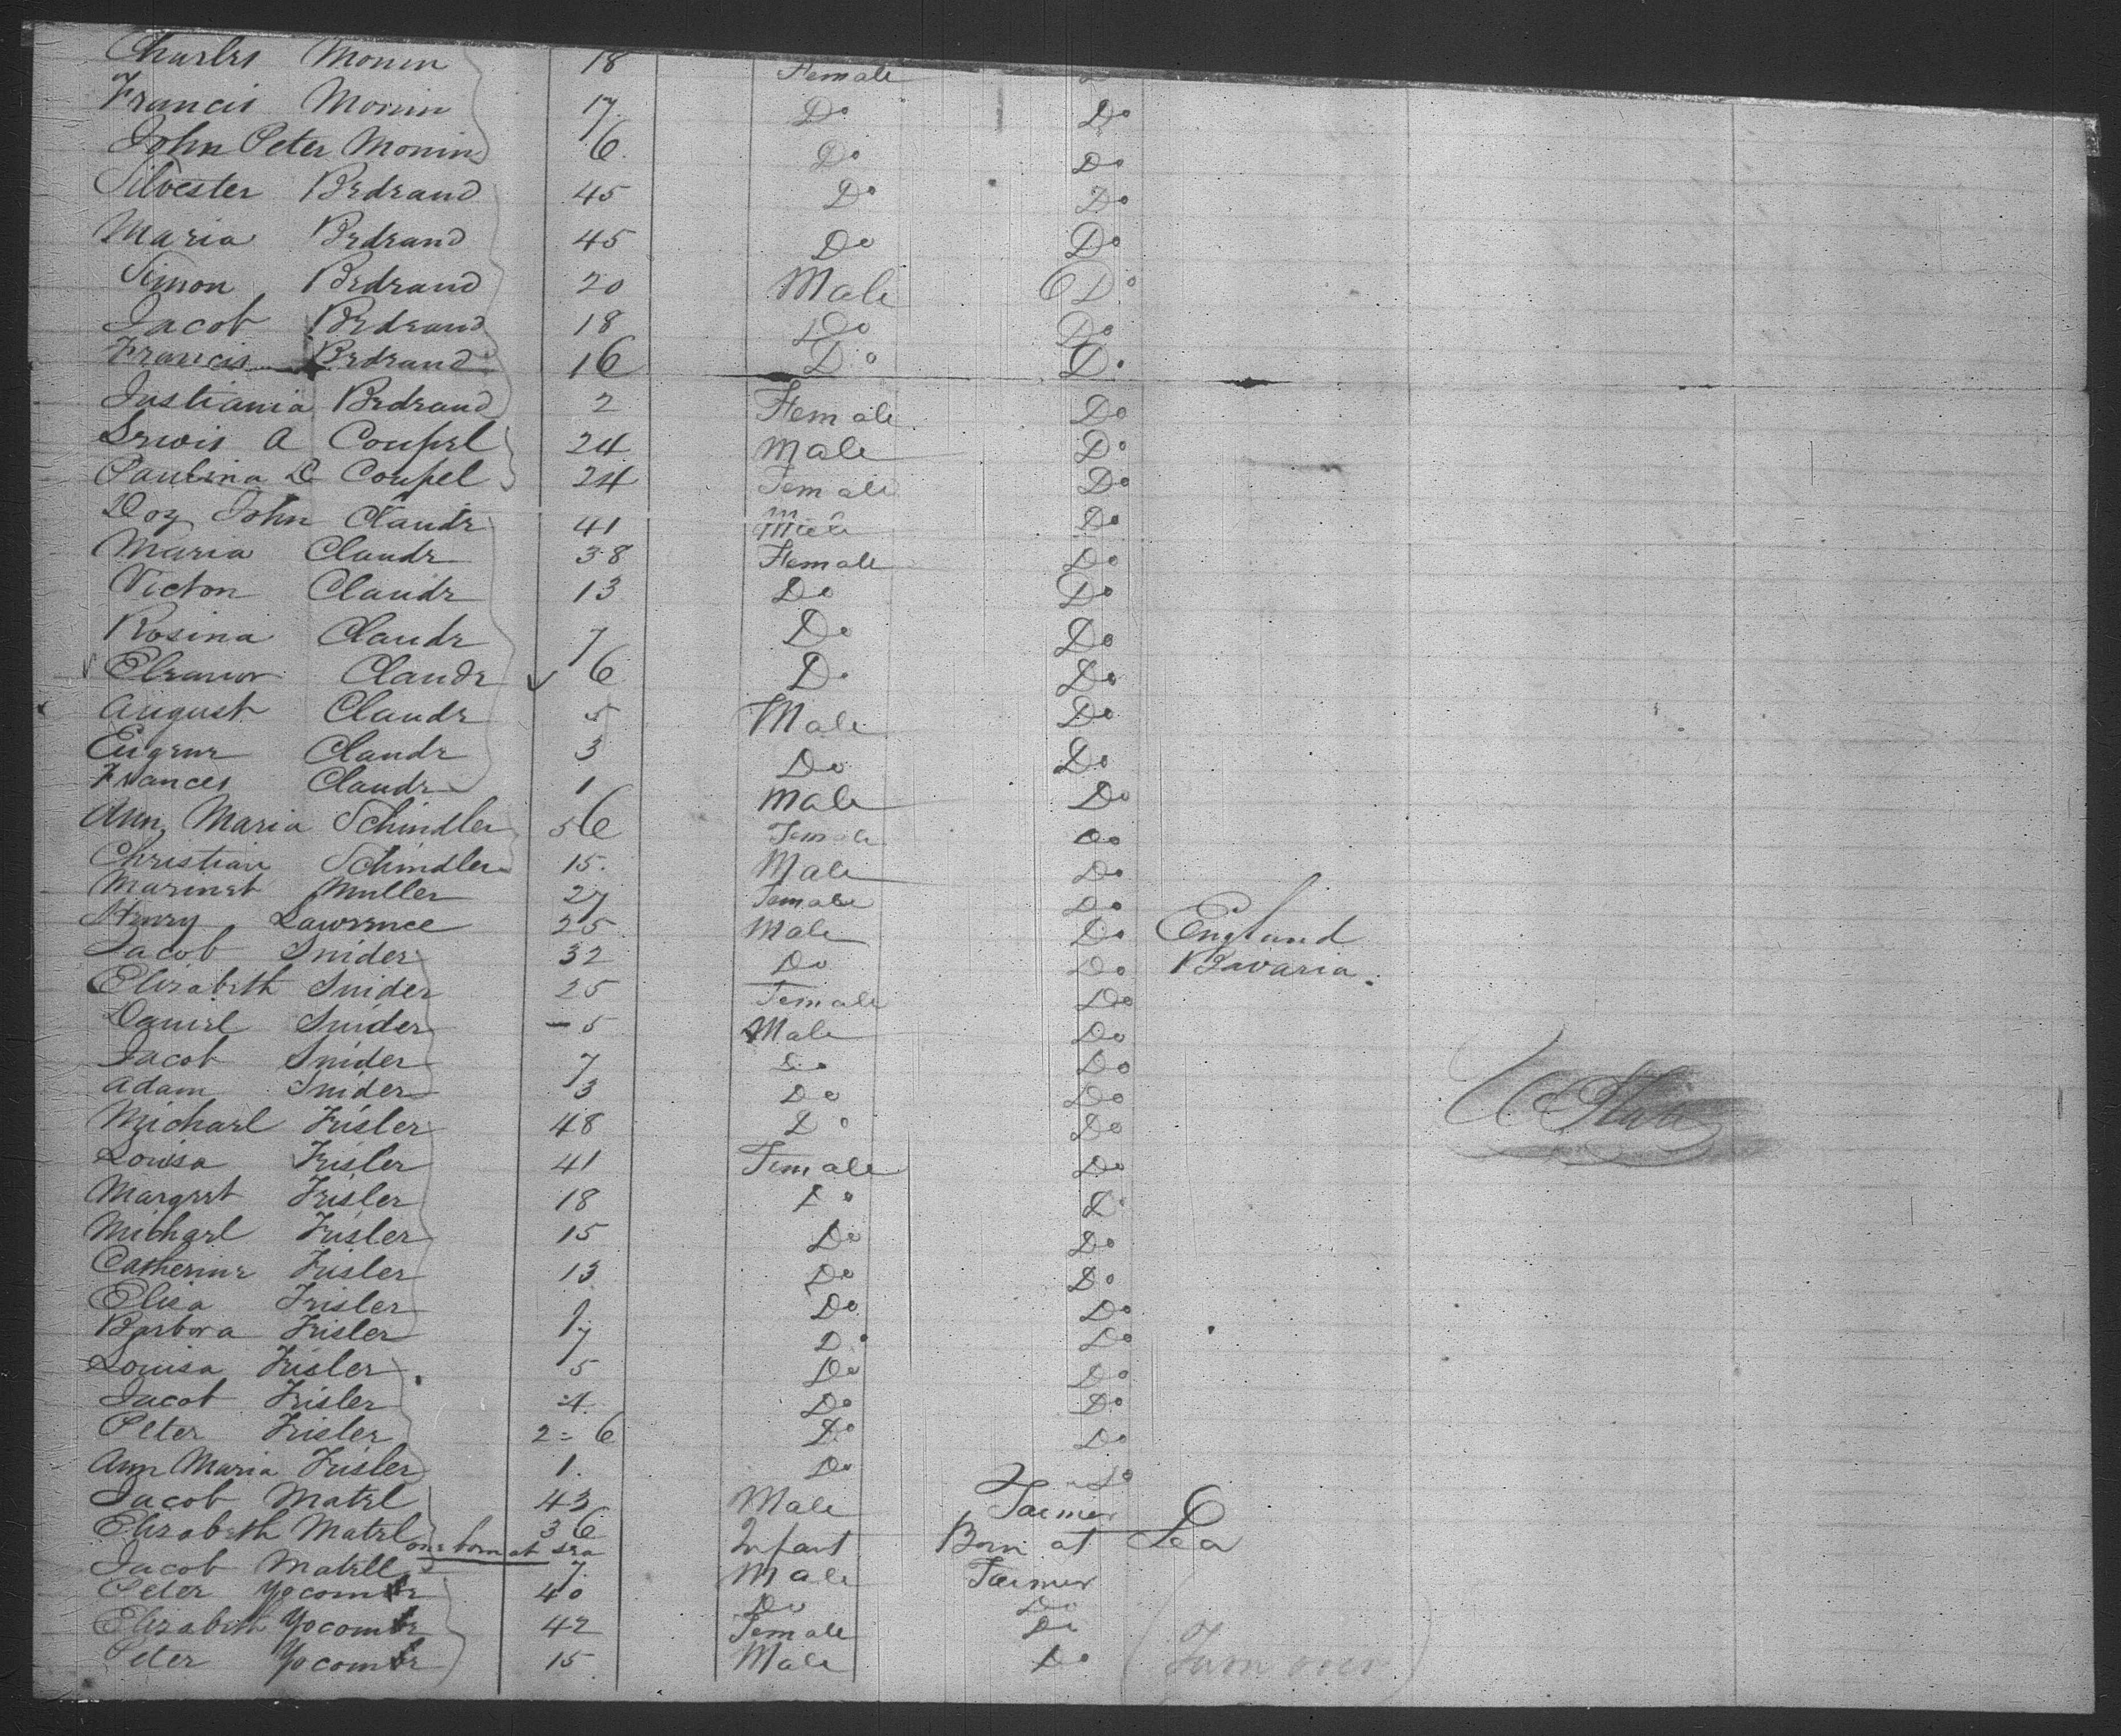 Charles Monin 18 Female
Francis Monin 17 Do Do
John Peter Monin 6 Do Do
Silvester Bedrand 45 Do Do
Maria Bedrand 45 Do Do
Simon Bedrand 20 Male Do
Jacob Bedrand 18 Do Do
Francis Bedrand 16 Do Do
Justiania Bedrand 2 Female Do
Lewis A Coupel 24 Male Do
Paulina D Coupel 24 Female Do
Doz John Claude 41 Male Do
Maria Claude 38 Female Do
Victon Claude 13 Do Do
Rosina Claude 7 Do Do
Eleanor Claude 6 Do Do
August Claude 5 Male Do
Eugene Claude 3 Do Do
Frances Claude 1 Male Do
Ann Maria Schindler 56 Female Do
Christian Schindler 15 Male Do
Muller 27 Female Do
Henry Lawrence 25 Male Do England
Jacob Snider 32 Do Do Bavaria
Elizabeth Snider 25 Female Do
Daniel Snider 5 Male Do
Jacob Snider 7 Do Do
Adam Snider 3 Do Do
Michael Frisler 48 Do Do
Louisa Frisler 41 Female Do
Margret Frisler 18 Do Do
Michael Frisler 15 Do Do
Catherine Frisler 13 Do Do
Elisa Frisler Do Do
Barbora Frisler 7 Do Do
Louisa Frisler 5 Do Do
Jacob Frisler 4 Do Do
Peter Frisler 2=6 Do Do
Ann Maria Frisler 1 Do Do
Jacob Matel 43 Male Farmer
Elizabeth Matel 36
one born at sea Infant Born at Sea
Jacob Matell 7 Male Farmer
Peter Yocomtr 40 Do Do
Elizabeth Yocomtr 42 Female Do
Peter Yocomtr 15 Male Do (Turn over)